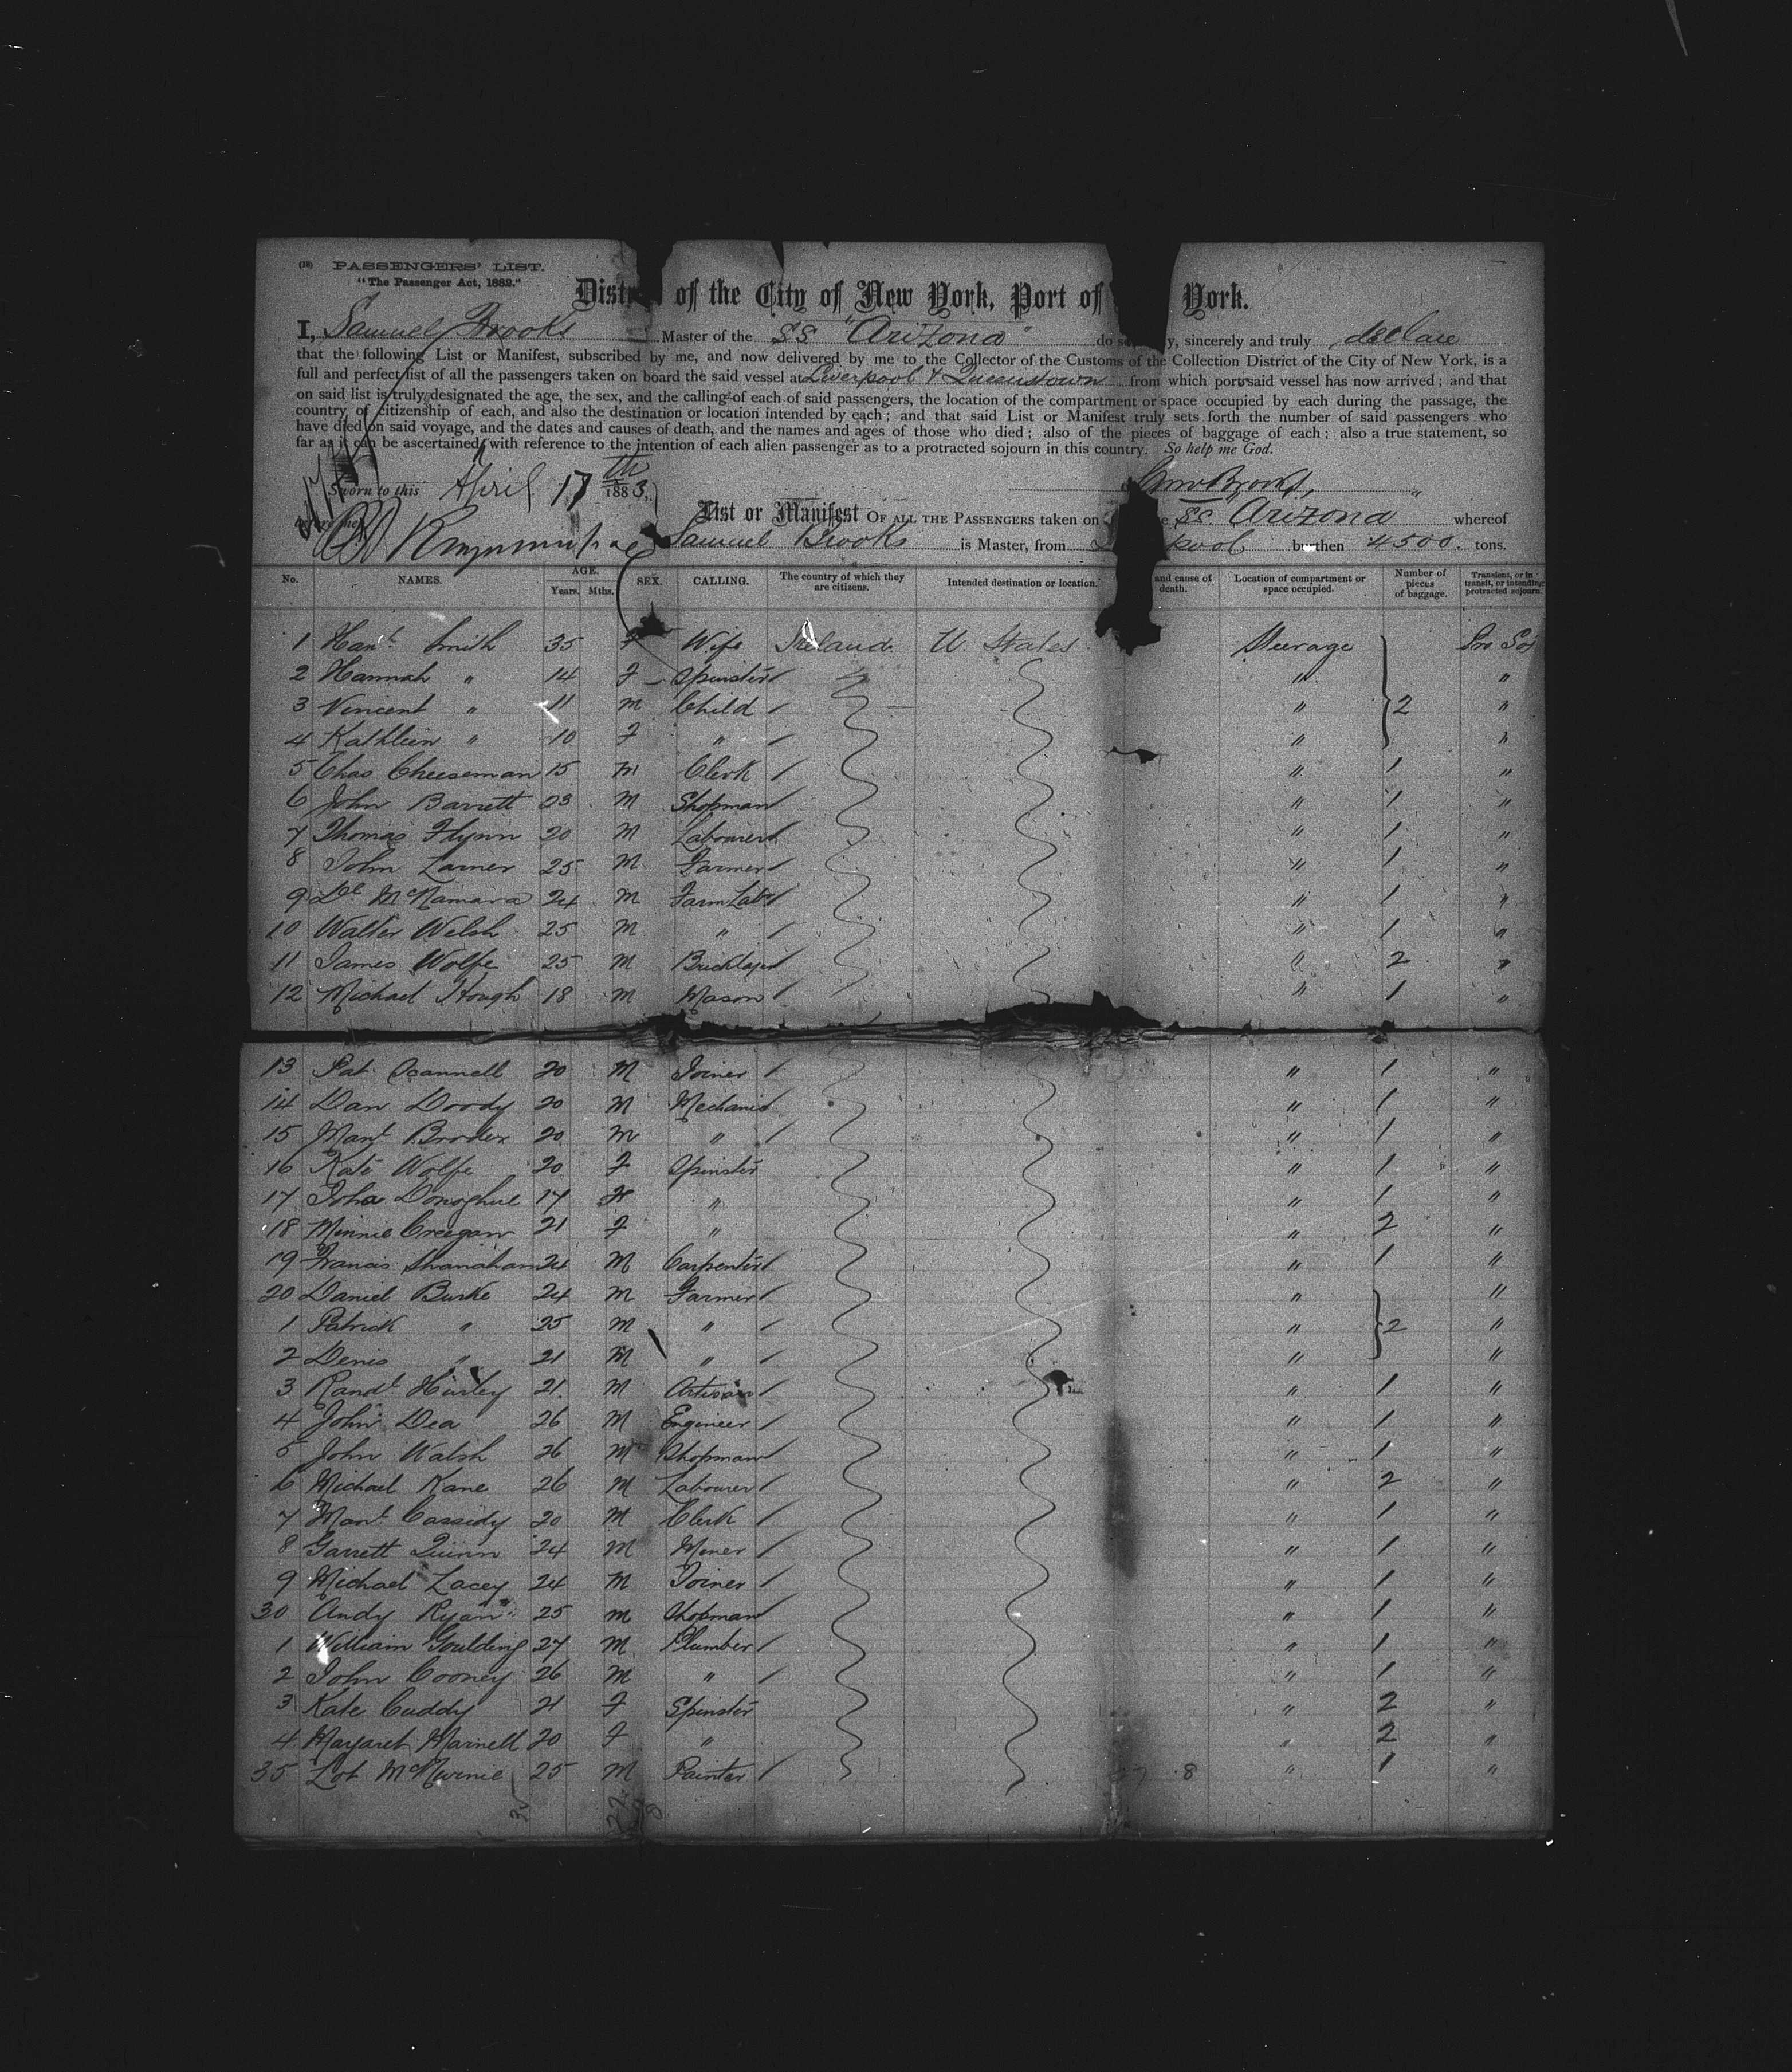 (18) PASSENGERS' LIST.
"The Passenger Act, 1882."
District of the City of New York, Port of York.
I, Samuel Brooks Master of the SS "Arizona" do sincerely and truly declare
that the following List or Manifest, subscribed by me, and now delivered by me to the Collector of the Customs of the Collection District of the City of New York, is a
full and perfect list of all the passengers taken on board the said vessel at Liverpool & Queenstown from which port said vessel has now arrived; and that
on said list is truly designated the age, the sex, and the calling of each of said passengers, the location of the compartment or space occupied by each during the passage, the
country of citizenship of each, and also the destination or location intended by each; and that said List or Manifest truly sets forth the number of said passengers who
have died on said voyage, and the dates and causes of death, and the names and ages of those who died; also of the pieces of baggage of each; also a true statement, so
far as it can be ascertained, with reference to the intention of each alien passenger as to a protracted sojourn in this country. So help me God.
Sworn to this April 17th 1883, Brooks
before me
List or Manifest OF ALL THE PASSENGERS taken on SS. "Arizona" whereof
Samuel Brooks is Master, from pool burthen 4500. tons.
No. NAMES. AGE. Years. Mths. SEX. CALLING. The country of which they are citizens. Intended destination or location. and cause of death. Location of compartment or space occupied. Number of pieces of baggage. Transient, or in transit, or intending protracted sojourn.
1 Smith 35 F Wife Ireland. U. States Steerage
2 Hannah " 14 F Spinster " "
3 Vincent " 11 M Child " 2 "
4 Kathleen " 10 F " " "
5 Chas Cheeseman 15 M Clerk " 1 "
6 John Barrett 23 M Shopman " 1 "
7 Thomas Flynn 20 M Labourer " 1 "
8 John Larner 25 M Farmer " 1 "
9 McNamara 24 M Farm Labr " 1 "
10 Walter Welsh 25 M " " 1 "
11 James Wolfe 25 M Bricklayer " 2 "
12 Michael Hough 18 M Mason " 1 "
13 Pat Scannell 20 M Joiner " 1 "
14 Dan Doody 20 M Mechanic " 1 "
15 Broder 20 M " " 1 "
16 Kate Wolfe 20 F Spinster " 1 "
17 Donoghue 17 F " " 1 "
18 Minnie Creegan 21 F " " 2 "
19 Francis Shanahan 24 M Carpenter " 1 "
20 Daniel Burke 24 M Farmer " "
1 Patrick " 25 M " " 2 "
2 Denis " 21 M " " "
3 Randl Hurley 21 M Artisan " 1 "
4 John Dea 26 M Engineer " 1 "
5 John Walsh 26 M Shopman " 1 "
6 Michael Kane 26 M Labourer " 2 "
7 Cassidy 20 M Clerk " 1 "
8 Garrett Quinn 24 M Miner " 1 "
9 Michael Lacey 24 M Joiner " 1 "
30 Andy Ryan 25 M Shopman " 1 "
1 William Goulding 27 M Plumber " 1 "
2 John Cooney 26 M " " 1 "
3 Kate Cuddy 21 F Spinster " 2 "
4 Margaret Marnell 20 F " " 2 "
35 25 M Painter 8 " 1 "